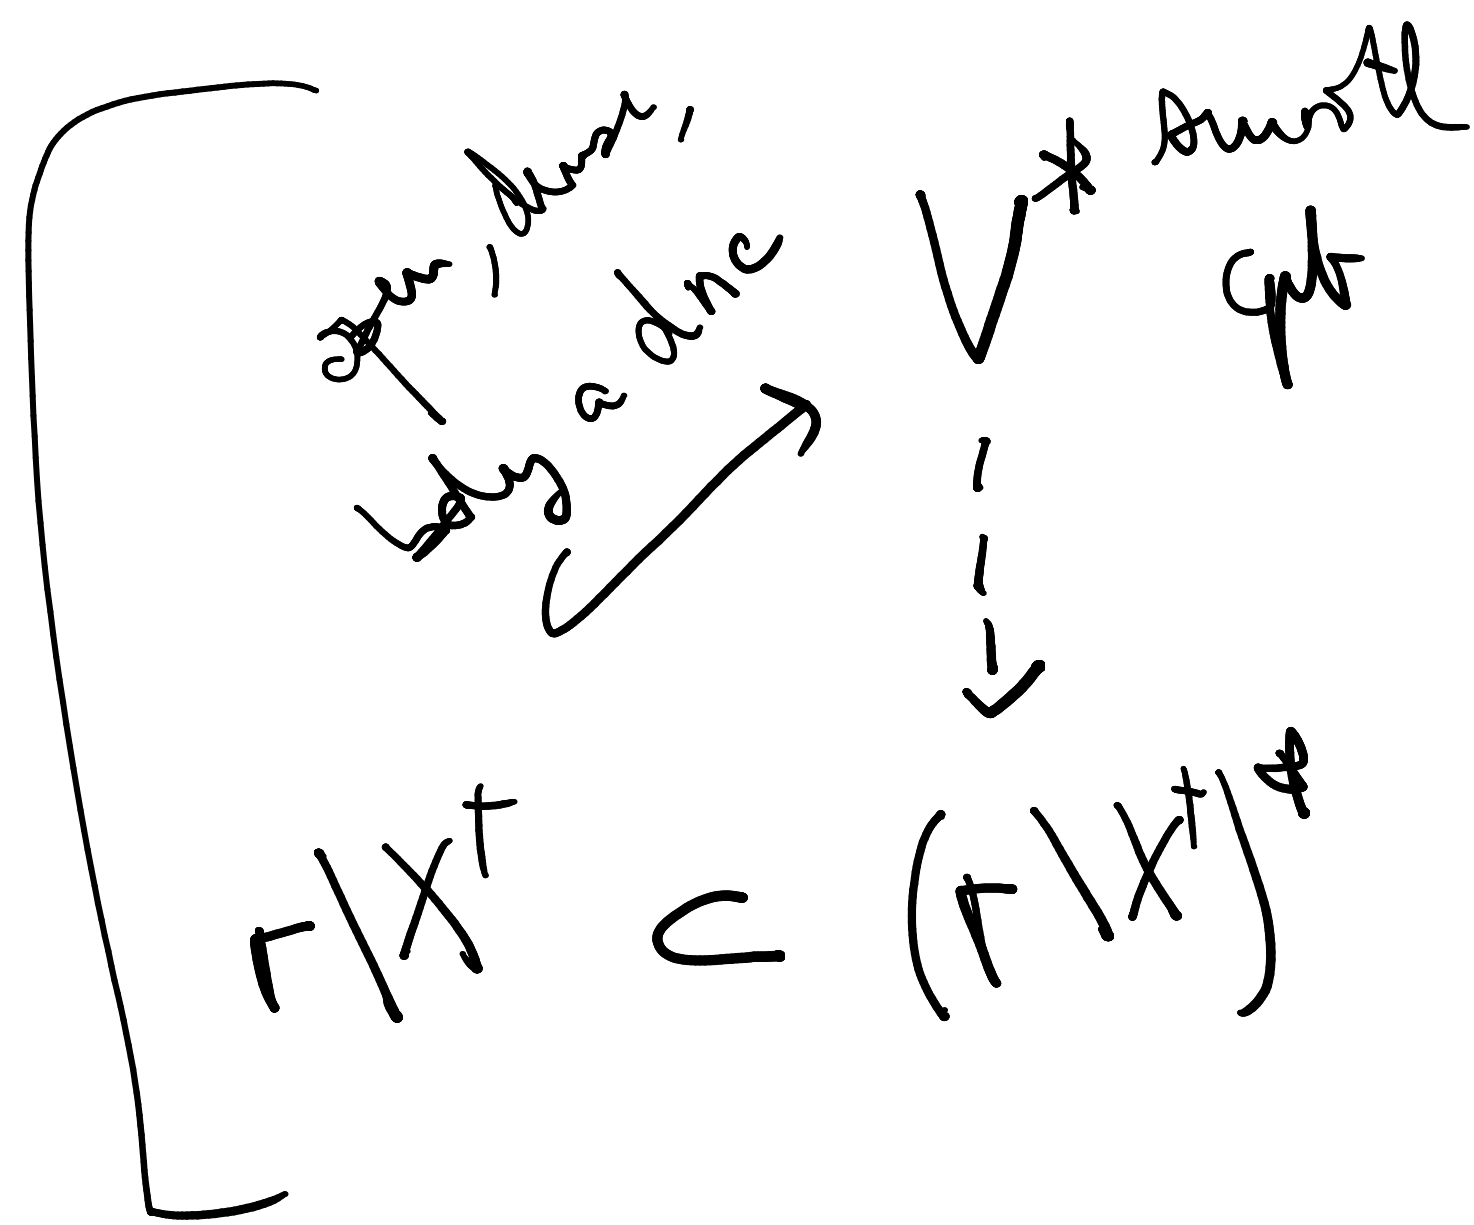 open, dense,
bdry a dnc
V* smooth
cpt
Γ\X⁺ ⊂ (Γ\X⁺)*